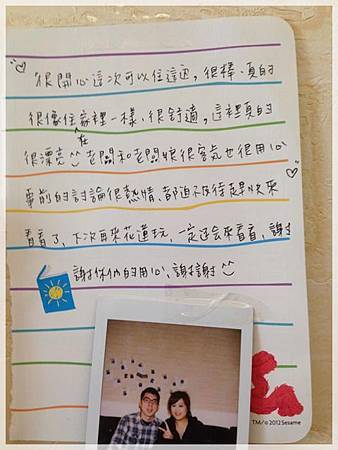 很開心這次可以住這邊，很棒、真的
很像住在家裡一樣、很舒適，這裡真的
很漂亮^^ 老闆和老闆娘很客氣也很用心
事前的討論很熱情、都迫不及待趕快來
看看了、下次再來花蓮玩，一定還會來看看，謝謝
謝你們的用心、謝謝 ^^
TM/© 2012 Sesame